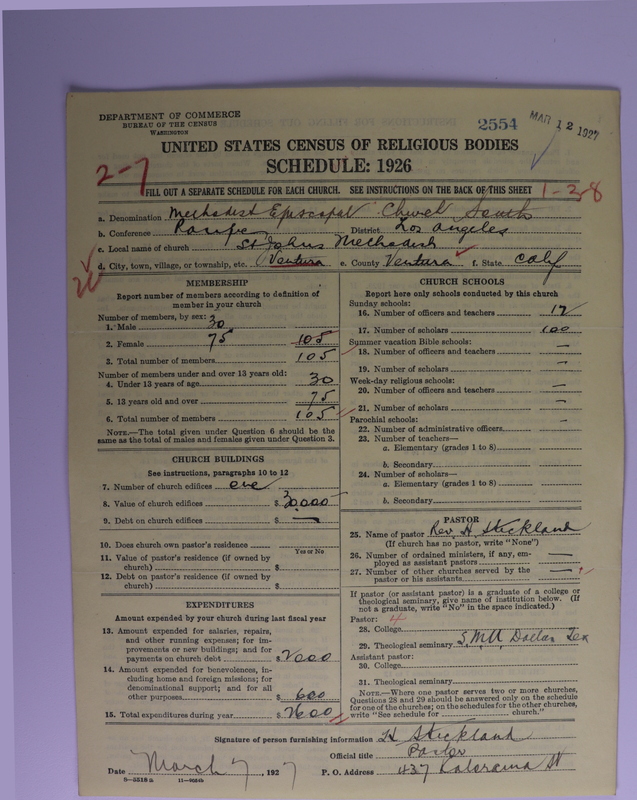 DEPARTMENT OF COMMERCE
BUREAU OF THE CENSUS
WASHINGTON
2554
MAR 12 1927
UNITED STATES CENSUS OF RELIGIOUS BODIES
SCHEDULE: 1926
2-7
FILL OUT A SEPARATE SCHEDULE FOR EACH CHURCH. SEE INSTRUCTIONS ON THE BACK OF THIS SHEET
1-38
a. Denomination Methodist Episcopal Church South
b. Conference District Los Angeles
c. Local name of church St Johns Methodist
d. City, town, village, or township, etc. Ventura e. County Ventura f. State Calif
MEMBERSHIP
Report number of members according to definition of
member in your church
Number of members, by sex:
1. Male 30
2. Female 75 105
3. Total number of members 105
Number of members under and over 13 years old:
4. Under 13 years of age 30
5. 13 years old and over 75
6. Total number of members 105
NOTE.—The total given under Question 6 should be the
same as the total of males and females given under Question 3.
CHURCH BUILDINGS
See instructions, paragraphs 10 to 12
7. Number of church edifices one
8. Value of church edifices $ 30,000
9. Debt on church edifices $ —
10. Does church own pastor's residence
Yes or No
11. Value of pastor's residence (if owned by
church) $
12. Debt on pastor's residence (if owned by
church) $
EXPENDITURES
Amount expended by your church during last fiscal year
13. Amount expended for salaries, repairs,
and other running expenses; for im-
provements or new buildings; and for
payments on church debt $ 2000
14. Amount expended for benevolences, in-
cluding home and foreign missions; for
denominational support; and for all
other purposes $ 600
15. Total expenditures during year $ 2600
CHURCH SCHOOLS
Report here only schools conducted by this church
Sunday schools:
16. Number of officers and teachers 12
17. Number of scholars 100
Summer vacation Bible schools:
18. Number of officers and teachers —
19. Number of scholars —
Week-day religious schools:
20. Number of officers and teachers —
21. Number of scholars —
Parochial schools:
22. Number of administrative officers
23. Number of teachers—
a. Elementary (grades 1 to 8)
b. Secondary
24. Number of scholars—
a. Elementary (grades 1 to 8)
b. Secondary
PASTOR
25. Name of pastor Rev. H Stickland
(If church has no pastor, write "None")
26. Number of ordained ministers, if any, em-
ployed as assistant pastors —
27. Number of other churches served by the
pastor or his assistants —
If pastor (or assistant pastor) is a graduate of a college or
theological seminary, give name of institution below. (If
not a graduate, write "No" in the space indicated.)
Pastor: 4
28. College
29. Theological seminary S.M.U. Dallas Tex
Assistant pastor:
30. College
31. Theological seminary
NOTE.—Where one pastor serves two or more churches,
Questions 28 and 29 should be answered only on the schedule
for one of the churches; on the schedules for the other churches,
write "See schedule for church."
Signature of person furnishing information H Stickland
Official title Pastor
Date March 7, 1927 P. O. Address 437 Kalorama St
8—5518 a